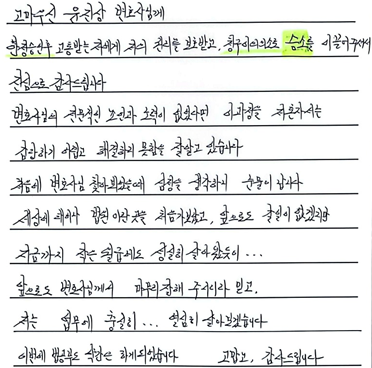 고마우신 유진상 변호사님께
한정승인후 고통받는 저에게 저의 권리를 보호받고, 청구이의의소 승소를 이끌어주셔서
진심으로 감사드립니다
변호사님의 전문적인 조언과 노력이 없었다면 이과정을 저혼자서는
감당하기 어렵고 해결하지 못함을 잘알고 있습니다
처음에 변호사님 찾아뵈었을때 심정을 생각하니 눈물이 납니다
세상에 태어나 법원 이란곳을 처음가보았고, 앞으로도 갈일이 없겠지만
지금까지 작은 월급에도 성실히 살아왔듯이...
앞으로도 변호사님께서 마무리 잘해 주시리라 믿고,
저는 업무에 충실히... 열심히 살아보겠습니다
이번에 법공부도 하게되었습니다 고맙고, 감사드립니다